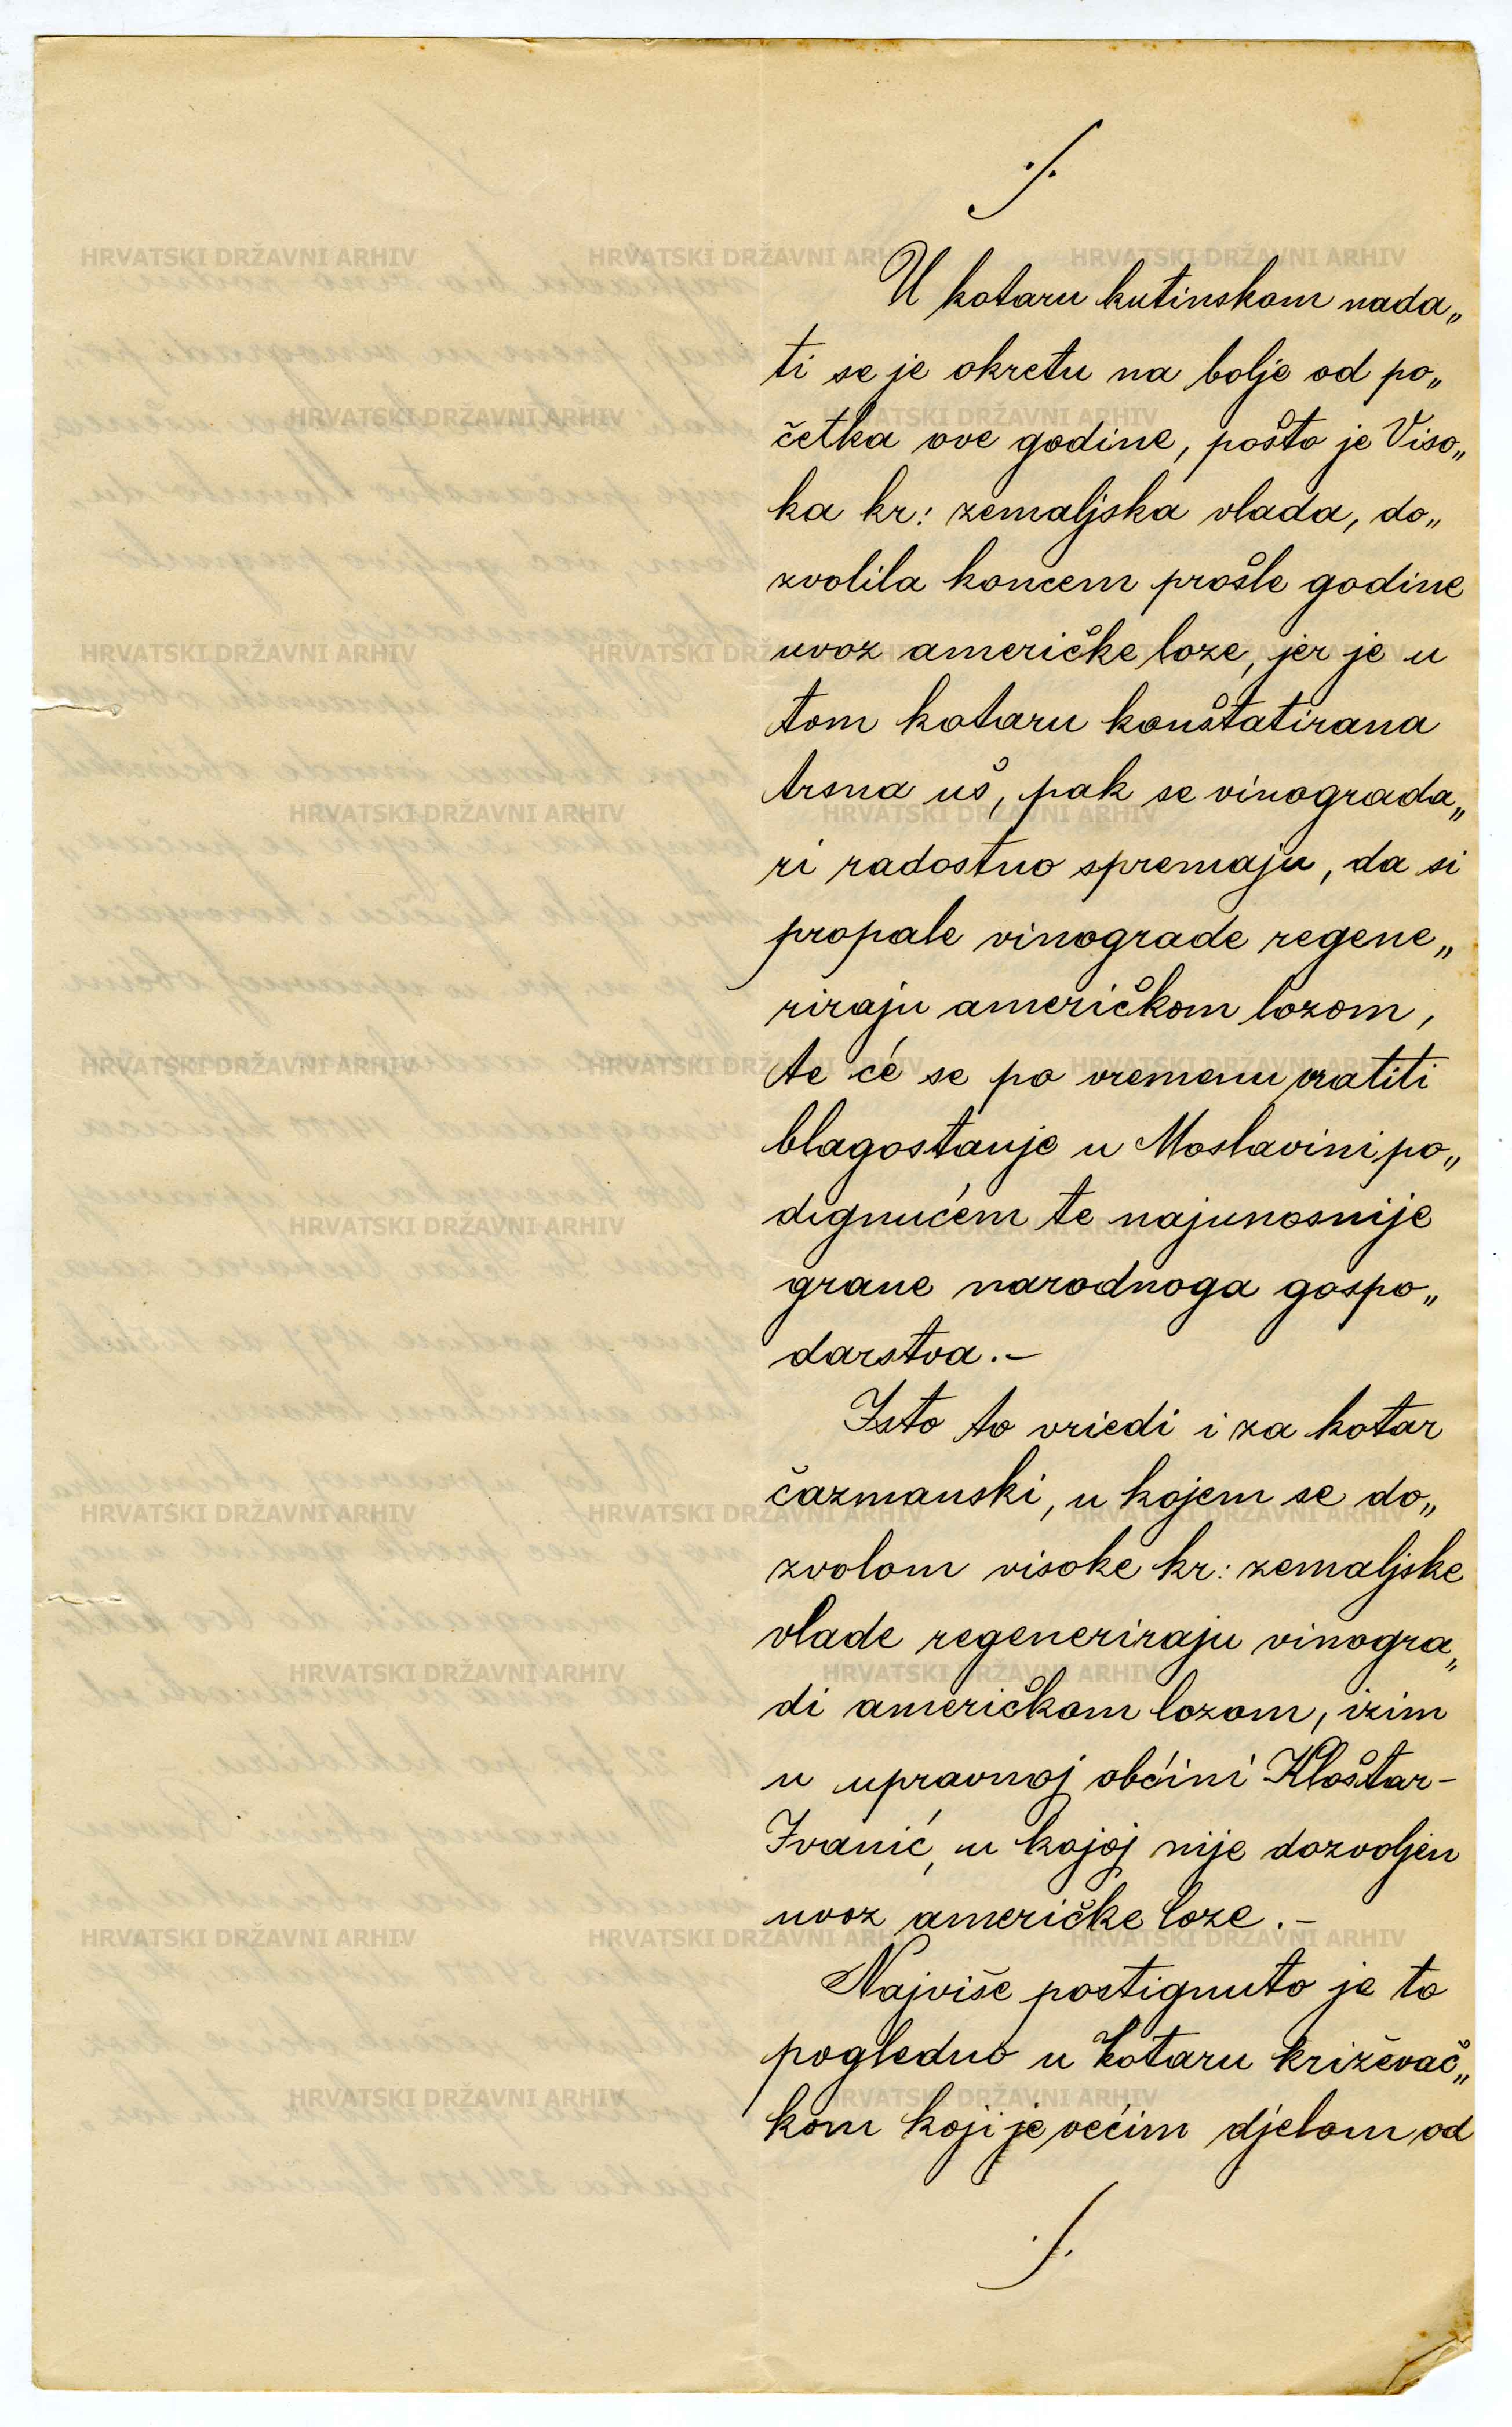 ./.
U kotaru kutinskom nada„
ti se je okretu na bolje od po„
četka ove godine, pošto je Viso„
ka kr: zemaljska vlada, do„
zvolila koncem prošle godine
uvoz američke loze, jer je u
tom kotaru konštatirana
trsna uš, pak se vinograda„
ri radostno spremaju, da si
propale vinograde regene„
riraju američkom lozom,
te će se po vremenu vratiti
blagostanje u Moslavini po„
dignućem te najunosnije
grane narodnoga gospo„
darstva.-
Isto to vriedi i za kotar
čazmanski, u kojem se do„
zvolom visoke kr: zemaljske
vlade regeneriraju vinogra„
di američkom lozom, izim
u upravnoj obćini Kloštar-
Ivanić, u kojoj nije dozvoljen
uvoz američke loze.-
Najviše postignuto je to
pogledno u kotaru križevač„
kom koji je većim djelom od
./.
HRVATSKI DRŽAVNI ARHIV